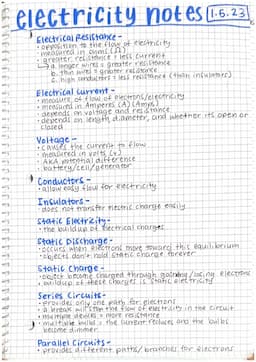 electricity notes 1.5.23
Electrical Resistance -
• opposition to the flow of electricity
• measured in ohms (Ω)
• greater resistance = less current
↳ a. longer wires = greater resistance
b. thin wires = greater resistance
c. high conductors = less resistance (than insulators)
Electrical Current -
• measure of flow of electrons/electricity
• measured in Amperes (A) (Amps)
• depends on voltage and resistance
• depends on length, diameter, and whether its open or
closed
Voltage -
• causes the current to flow
• measured in volts (v)
• AKA potential difference
• battery/cell/generator
Conductors -
• allow easy flow for electricity
Insulators -
• does not transfer electric charge easily
Static Electricity -
• the buildup of electrical charges
Static Discharge -
• occurs when electrons move toward this equilibrium
• objects don't hold static charge forever
Static Charge -
• object become charged through gaining/losing electrons
• buildup of these charges is static electricity
Series Circuits -
• provides only one path for electrons
• a break will stop the flow of electricity in the circuit
• multiple devices = more resistance
• multiple bulbs = the current reduces and the bulbs
become dimmer
Parallel Circuits -
• provides different paths/branches for electrons